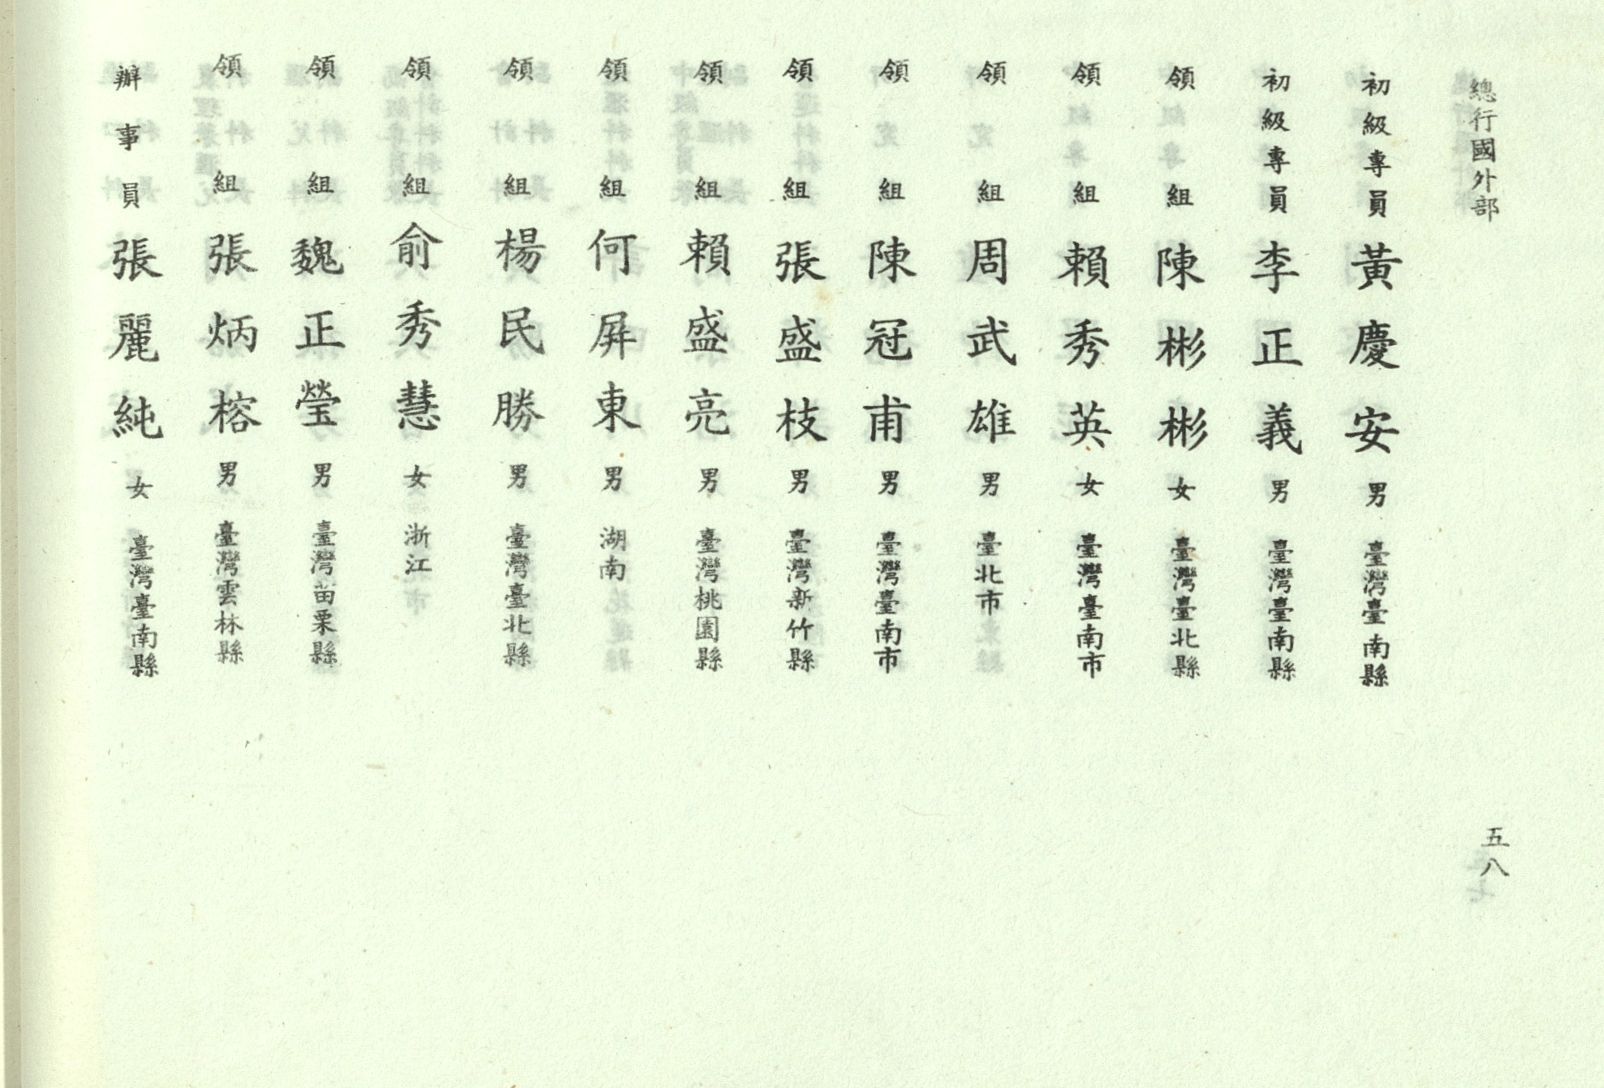 總行國外部
五八
初級專員 黃慶安 男 臺灣臺南縣
初級專員 李正義 男 臺灣臺南縣
領組 陳彬彬 女 臺灣臺北縣
領組 賴秀英 女 臺灣臺南市
領組 周武雄 男 臺北市
領組 陳冠甫 男 臺灣臺南市
領組 張盛枝 男 臺灣新竹縣
領組 賴盛亮 男 臺灣桃園縣
領組 何屏東 男 湖南
領組 楊民勝 男 臺灣臺北縣
領組 俞秀慧 女 浙江
領組 魏正瑩 男 臺灣苗栗縣
領組 張炳榕 男 臺灣雲林縣
辦事員 張麗純 女 臺灣臺南縣